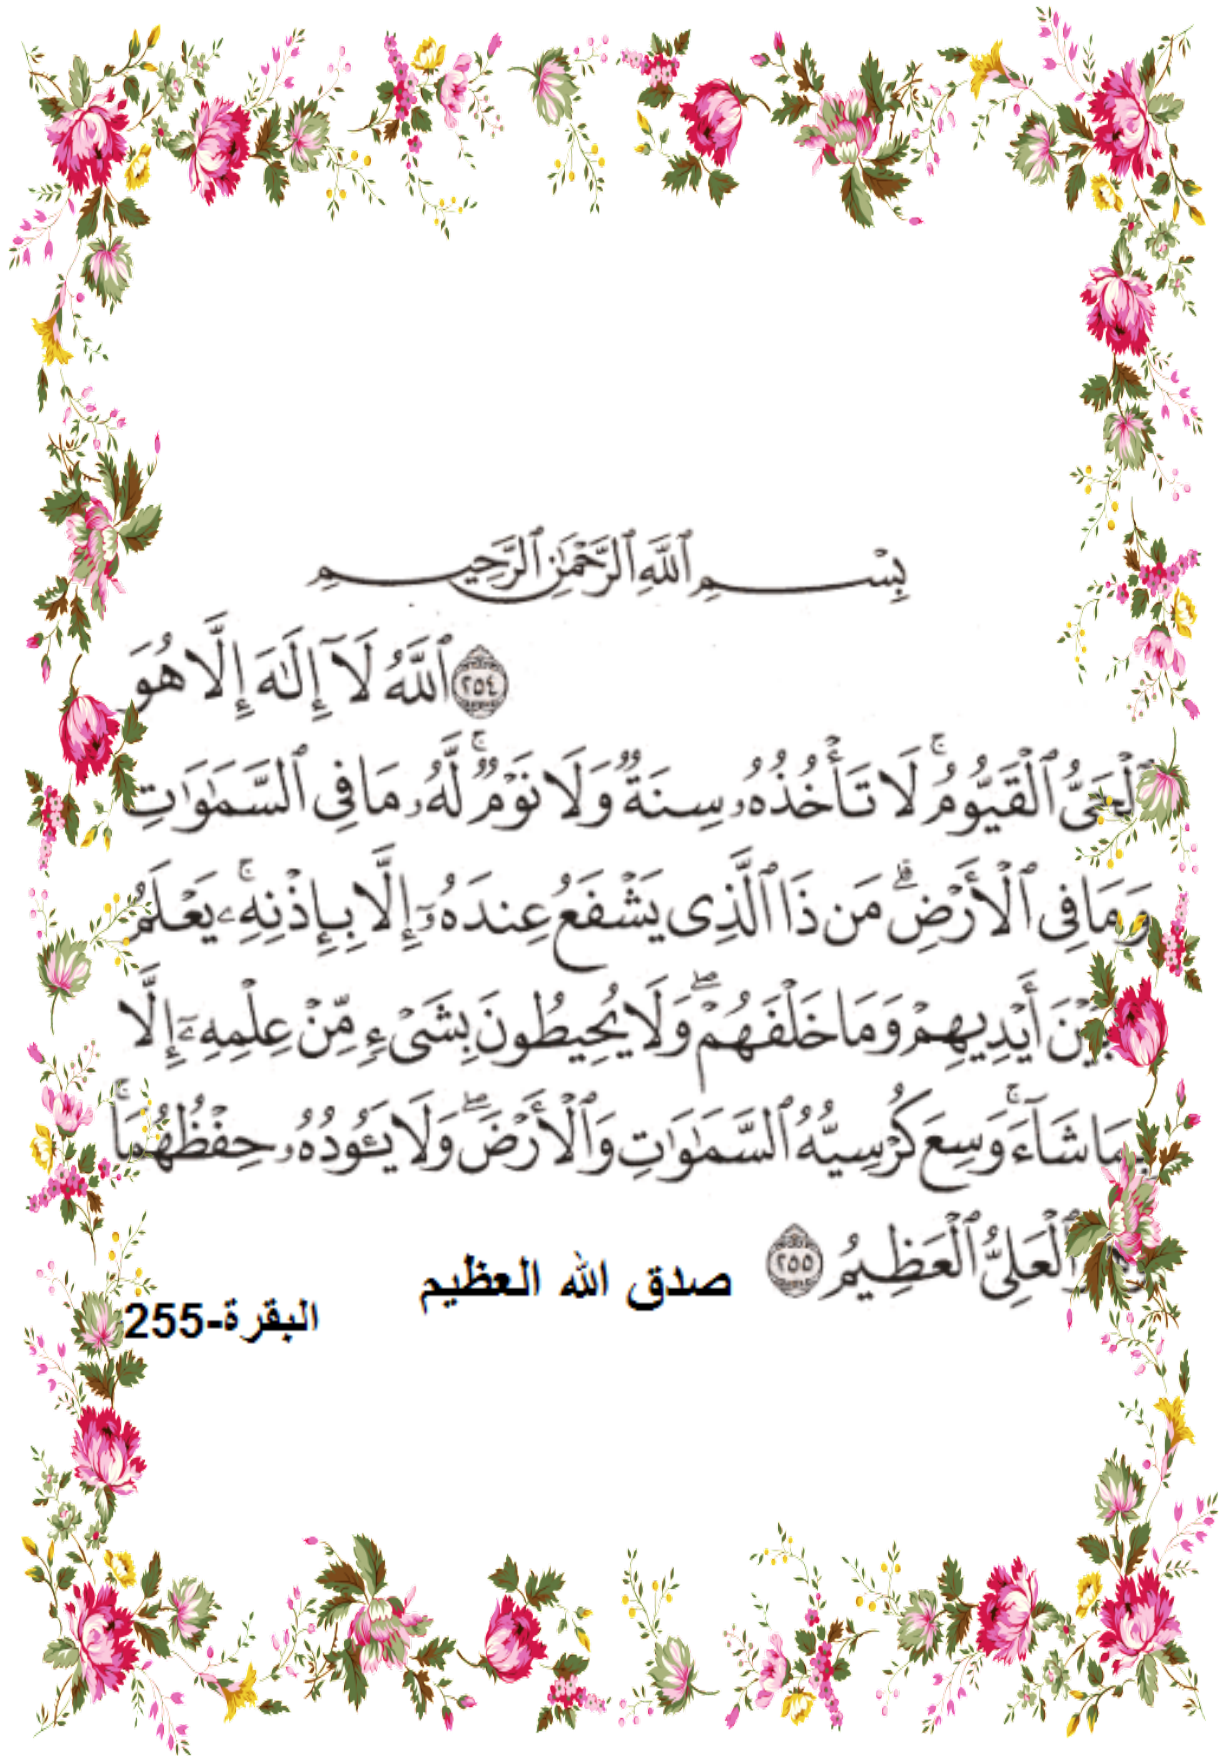 بِسْمِ ٱللَّهِ ٱلرَّحْمَٰنِ ٱلرَّحِيمِ
٢٥٤ ٱللَّهُ لَآ إِلَٰهَ إِلَّا هُوَ
ٱلْحَىُّ ٱلْقَيُّومُ ۚ لَا تَأْخُذُهُۥ سِنَةٌ وَلَا نَوْمٌ ۚ لَّهُۥ مَا فِى ٱلسَّمَٰوَٰتِ
وَمَا فِى ٱلْأَرْضِ ۗ مَن ذَا ٱلَّذِى يَشْفَعُ عِندَهُۥٓ إِلَّا بِإِذْنِهِۦ ۚ يَعْلَمُ
بَيْنَ أَيْدِيهِمْ وَمَا خَلْفَهُمْ ۖ وَلَا يُحِيطُونَ بِشَىْءٍ مِّنْ عِلْمِهِۦٓ إِلَّا
بِمَا شَآءَ ۚ وَسِعَ كُرْسِيُّهُ ٱلسَّمَٰوَٰتِ وَٱلْأَرْضَ ۖ وَلَا يَـُٔودُهُۥ حِفْظُهُمَا ۚ
وَهُوَ ٱلْعَلِىُّ ٱلْعَظِيمُ ٢٥٥
صدق الله العظيم
البقرة-255